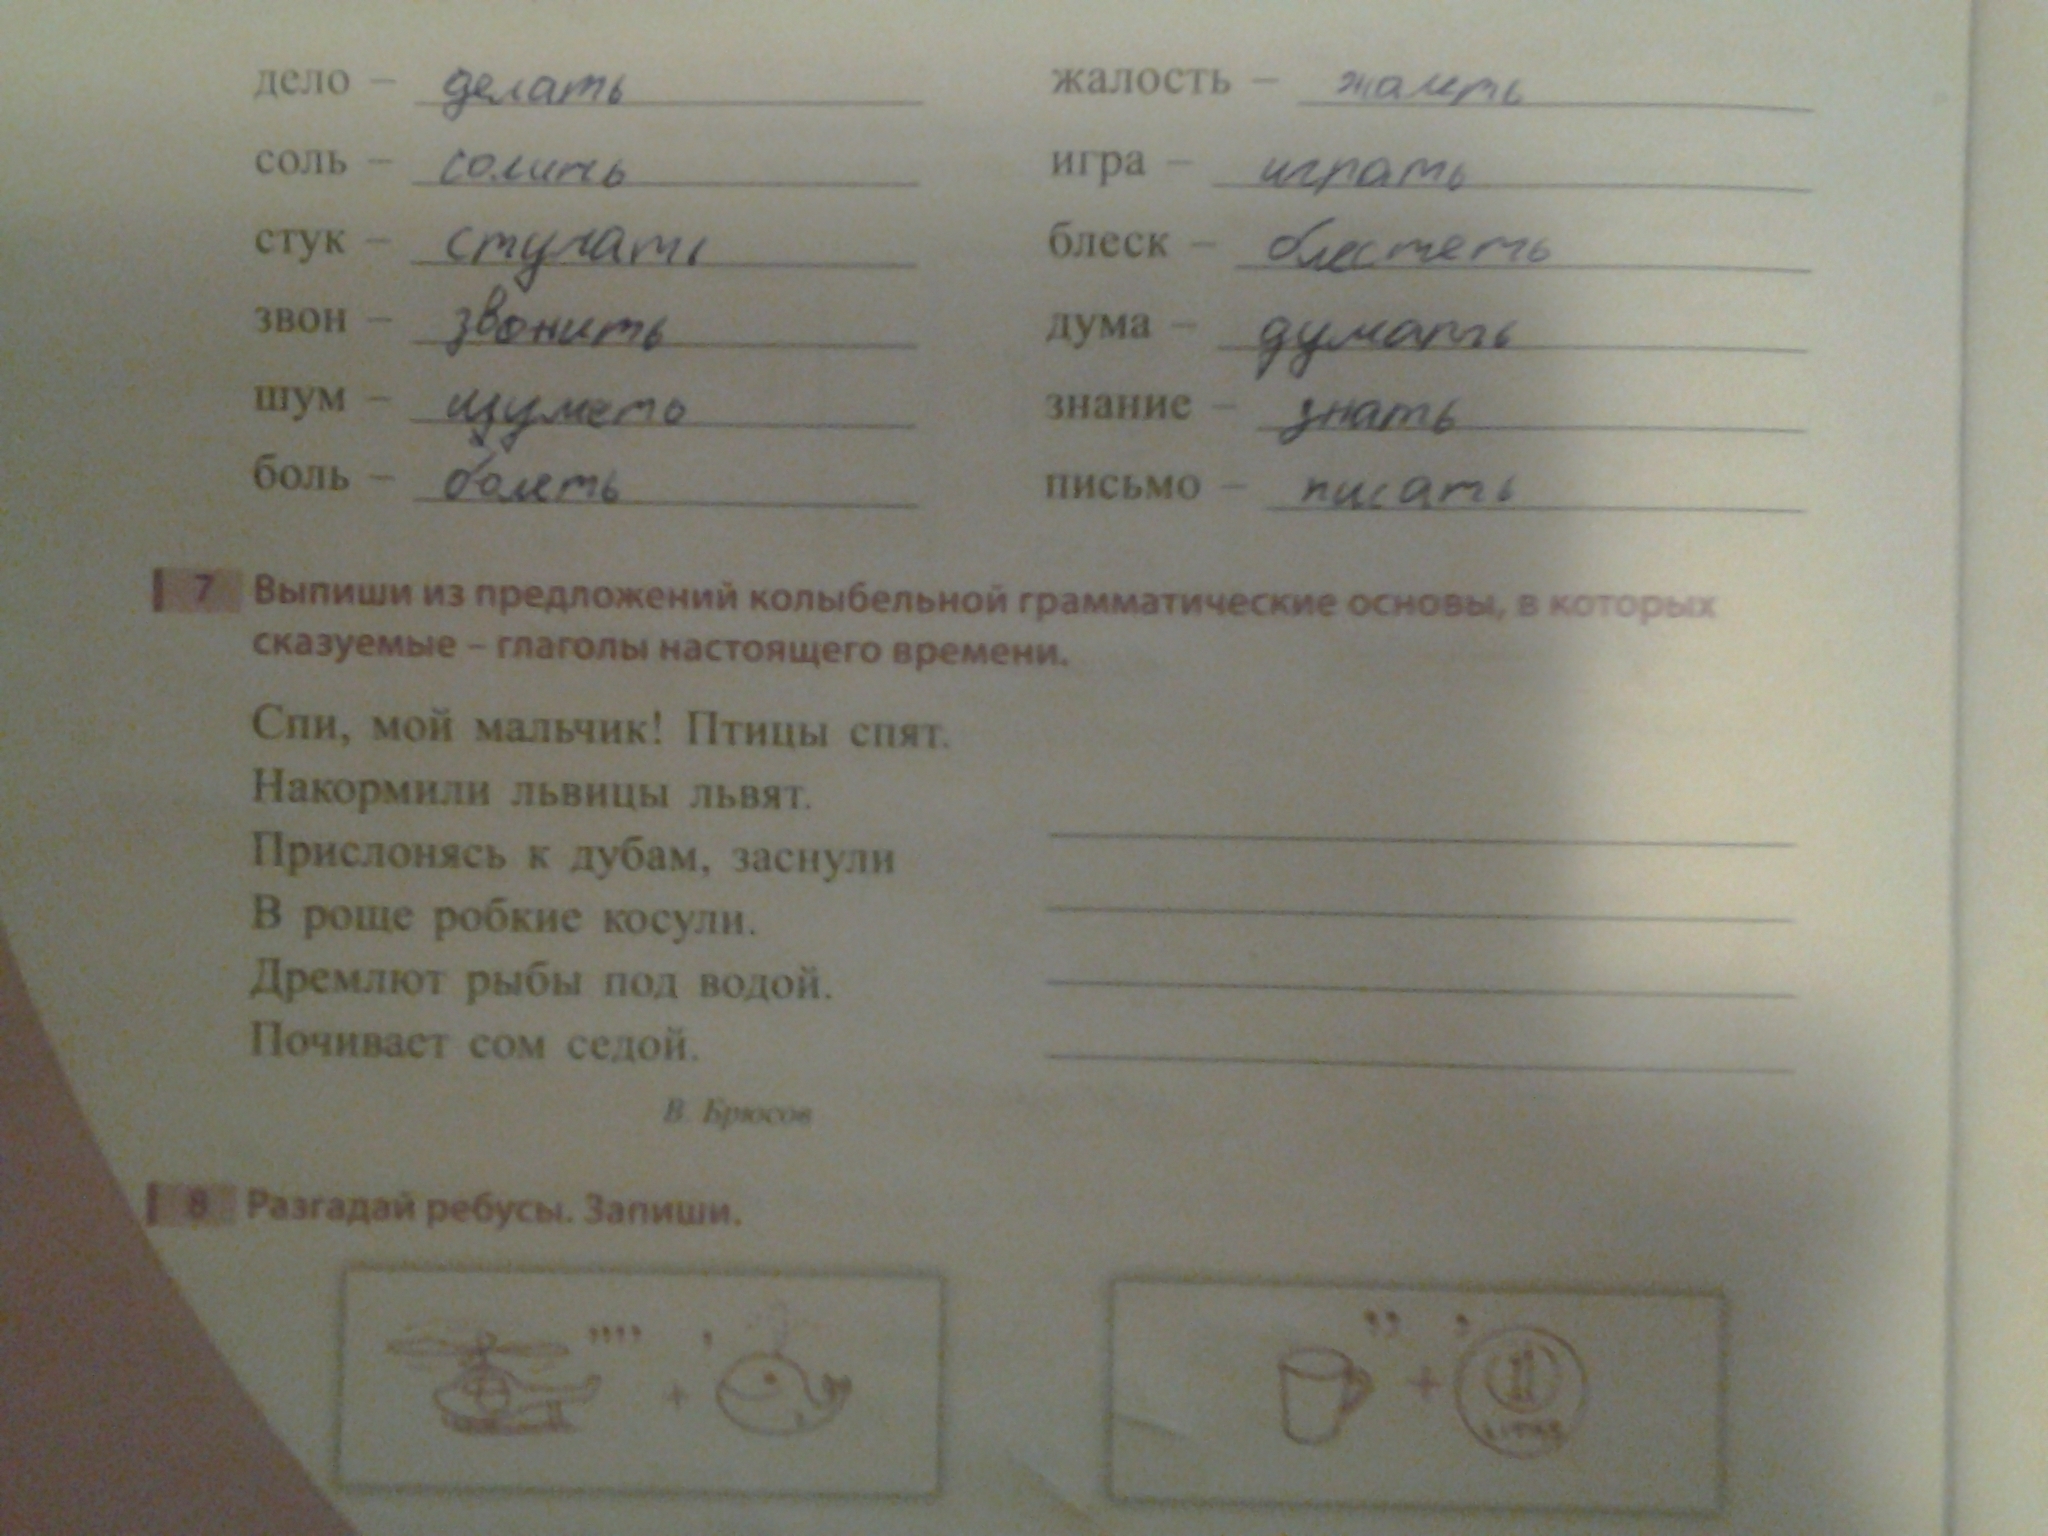 дело – делать
жалость – жалеть
соль – солить
игра – играть
стук – стучать
блеск – блестеть
звон – звонить
дума – думать
шум – шуметь
знание – знать
боль – болеть
письмо – писать
7 Выпиши из предложений колыбельной грамматические основы, в которых
сказуемые – глаголы настоящего времени.
Спи, мой мальчик! Птицы спят.
Накормили львицы львят.
Прислонясь к дубам, заснули
В роще робкие косули.
Дремлют рыбы под водой.
Почивает сом седой.
В. Брюсов
8 Разгадай ребусы. Запиши.
,,,, , +
,, + ,
1
LITAS